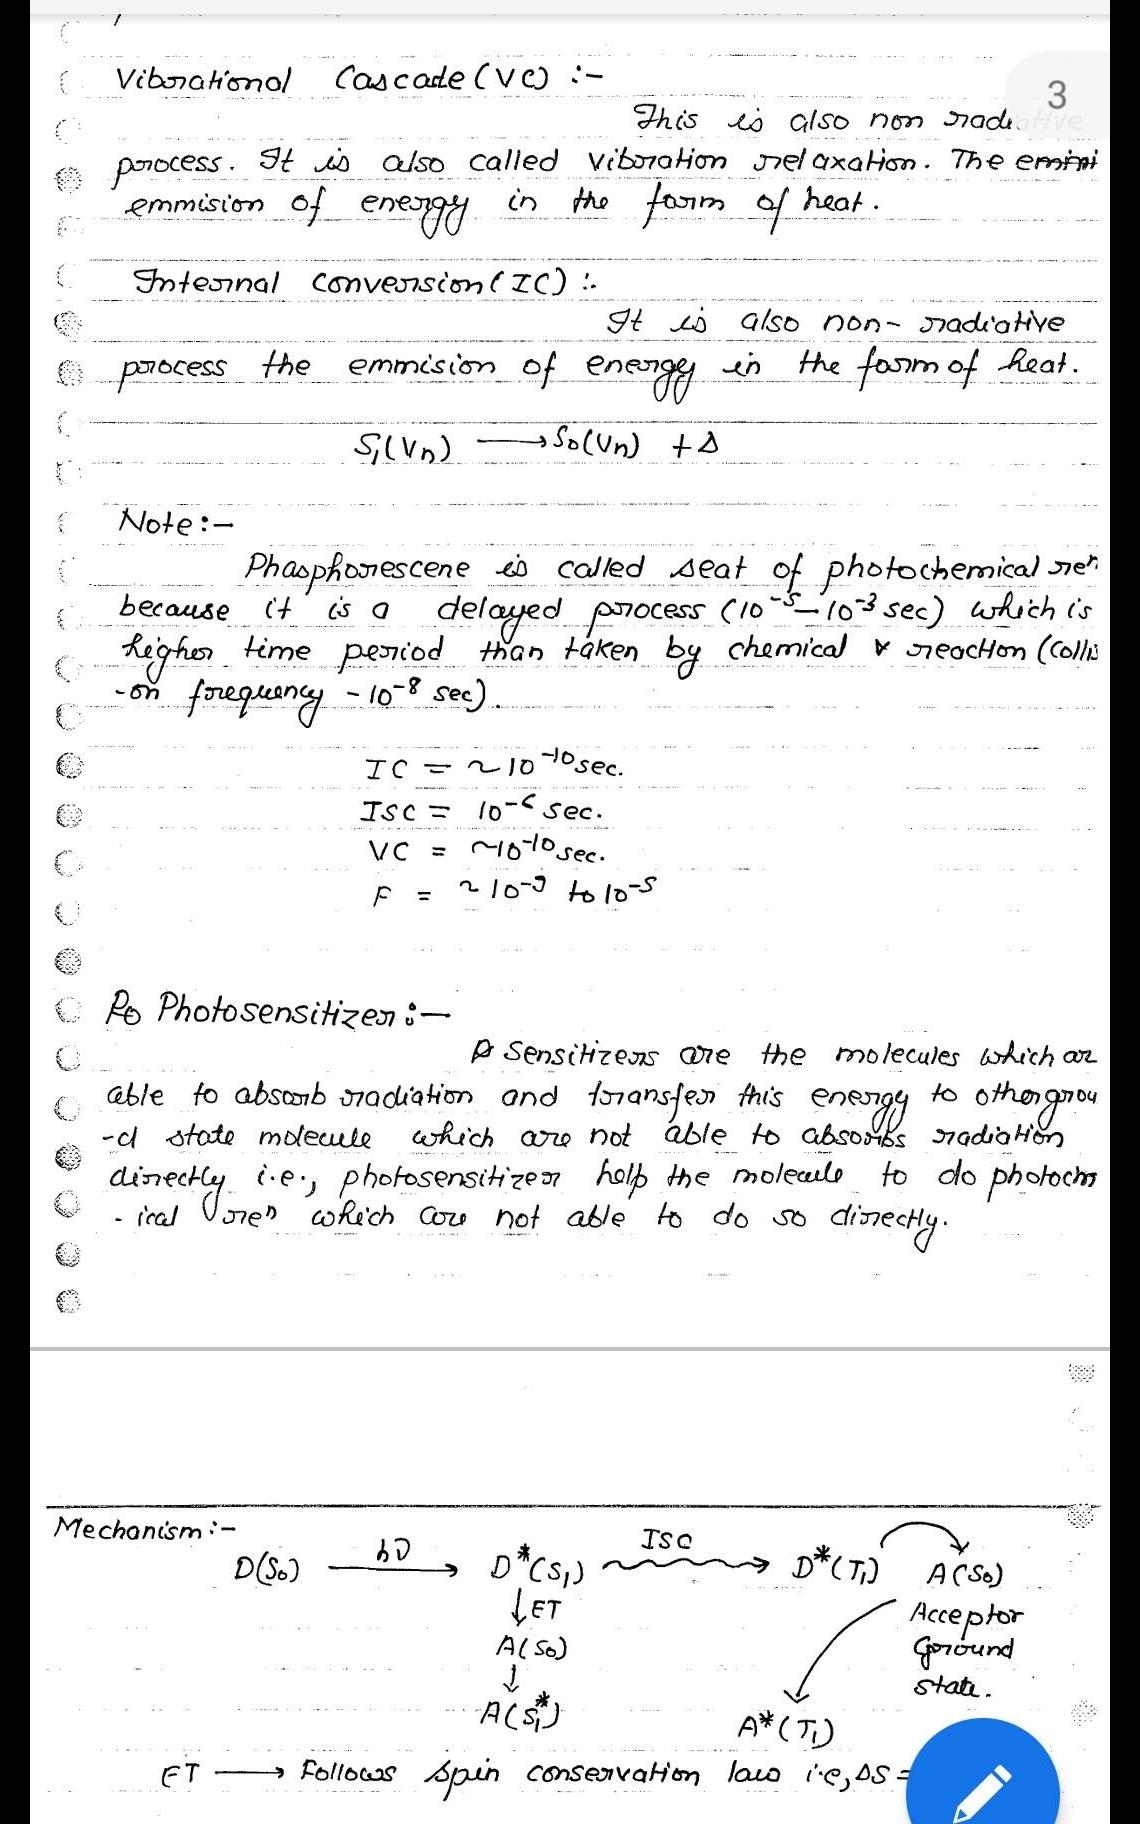 3
Vibrational Cascade (VC) :-
This is also non radiative
process. It is also called vibration relaxation. The
emmision of energy in the form of heat.
Internal Conversion (IC) :-
It is also non-radiative
process the emmision of energy in the form of heat.
S₁(Vn) ⟶ S₀(Vn) + Δ
Note :-
Phasphorescene is called seat of photochemical rexⁿ
because it is a delayed process (10⁻⁵ – 10⁻³ sec) which is
higher time period than taken by chemical reaction (Collis
-on frequency - 10⁻⁸ sec).
IC = ~10⁻¹⁰ sec.
ISC = 10⁻⁶ sec.
VC = ~10⁻¹⁰ sec.
F = ~10⁻⁹ to 10⁻⁵
Photosensitizer :-
Sensitizers are the molecules which ar
able to absorb radiation and transfer this energy to other grou
-d state molecule which are not able to absorbs radiation
directly i.e., photosensitizer help the molecule to do photochm
-ical rexⁿ which are not able to do so directly.
Mechanism :-
D(S₀) ⟶ hν D*(S₁) ISC D*(T₁) A(S₀)
↓ET Acceptor
A(S₀) Ground
↓ state.
A(S₁*) A*(T₁)
ET ⟶ Follows spin conservation law i.e, ΔS =